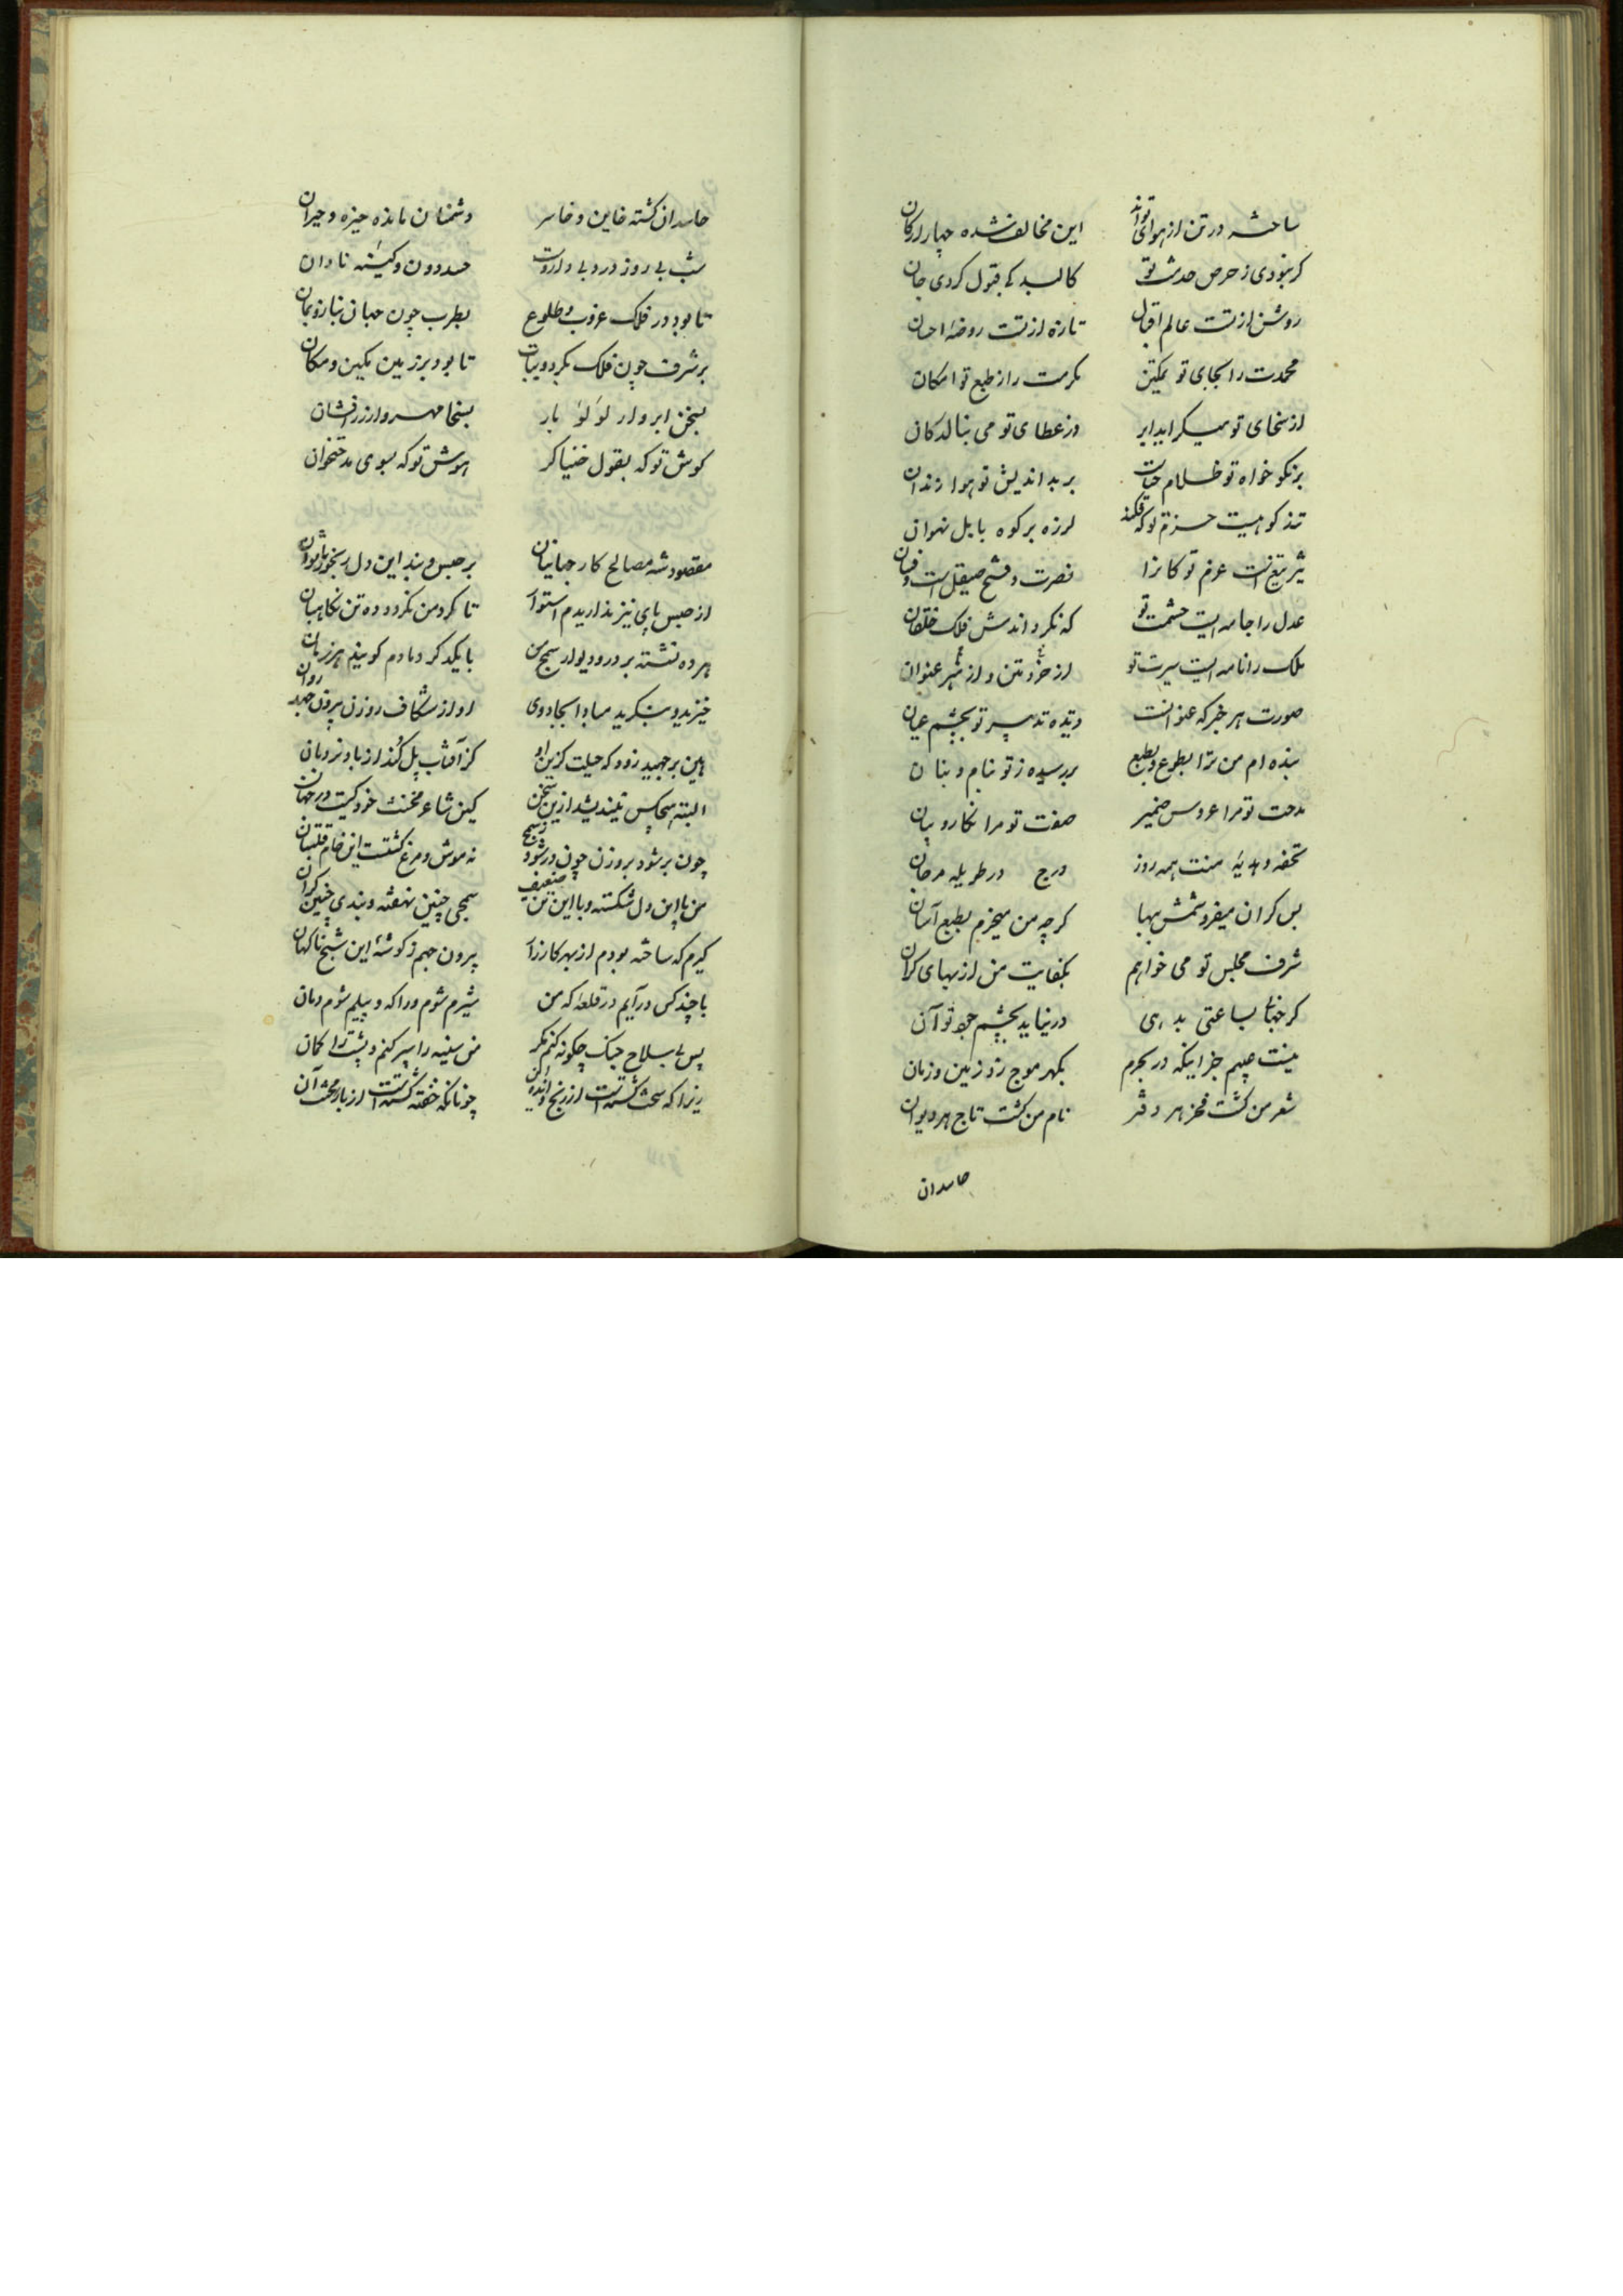 ساخته در تن از هوای تواند این مخالف شده چهار ارکان
گر نبودی ز حرص خدمت تو کالبد کی قبول کردی جان
روشن از تست عالم اقبال تازه از تست روضهٔ احسان
محمدت را بجای تو تمکین مکرمت را ز طبع تو امکان
از سخای تو میگراید ابر وز عطای تو می بنالد کان
بر نکو خواه تو ظلام حیات بر بد اندیش تو هوا زندان
تند کوهیست حزم تو که فکند لرزه بر کوه بابل نهوان
تیز تیغست عزم تو کانرا نصرت و فتح صیقل است و فسان
عدل را جامه ایست حشمت تو که نگرداندش فلک خلقان
ملک را نامه ایست سیرت تو از خرد متن و از هنر عنوان
صورت هر خبر که عنوانست دیده تدبیر تو بچشم عیان
بنده ام من ترا بطوع و بطبع بر رسیده ز تو بنام و بنان
مدحت تو مرا عروس ضمیر صفت تو مرا نگار و بیان
تحفه و هدیهٔ منت همه روز درج در طویله مرجان
بس گران میفروشمش ببها گرچه من میخرم بطبع آسان
شرف مجلس تو می خواهم بکفایت من از بهای گران
گر جهان بساعتی بدهی در نیاید بچشم جود تو آن
نیست عیبم جز اینکه در بحرم بگهر موج زد زمین و زمان
شعر من گشت فخر هر دفتر نام من گشت تاج هر دیوان
حاسدان
حاسدان گشته خاین و خاسر دشمنان مانده خیره و حیران
شب بی روز درد بی داروت حسد دون و کینهٔ نادان
تا بود در فلک غروب و طلوع بطرب چون جهان بناز و بمان
بر شرف چون فلک بگرد و بتاب تا بود بر زمین مکین و مکان
بسخن ابروار لؤلؤ بار بسخا مهروار زر افشان
گوش تو که بقول خنیاگر هوش تو که بسوی مدحتخوان
مقصود شد مصالح کار جهانیان بر حبس و بند این دل رنجور ناتوان
از حبس پای نیز ندارندم استوار تا گرد من نگردد ده تن نگاهبان
هر ده نشسته بر در و دیوار سمج من با یکدگر دمادم گویند هر زمان
خیزید و بنگرید مبادا بجادوی او از شکاف روزن بیرون جهد روان
هین برجهید زود که حیلت گریست او کز آفتاب پل کند از باد نردبان
البته هیچکس نیندیشد از این سخن کین شاعر مخنث خود کیست در جهان
چون بر شود بروزن چون در شود ز سمج نه موش و مرغ گشتست این خام قلتبان
من با این دل شکسته و با این تن ضعیف سمجی چنین نهفته و بندی چنین گران
گیرم که ساخته بودم از بهر کارزار بیرون جهم ز گوشهٔ این شبح ناگهان
با چند کس در آیم در قلعه که من شیرم شوم دراکه و پیلم شوم دمان
پس بی سلاح جنگ چگونه کنم مگر من سینه را سپر کنم و پشت را کمان
زیرا که سخت گشته است از رنج و انده این چونانکه خفته گشته است از بار محنت آن